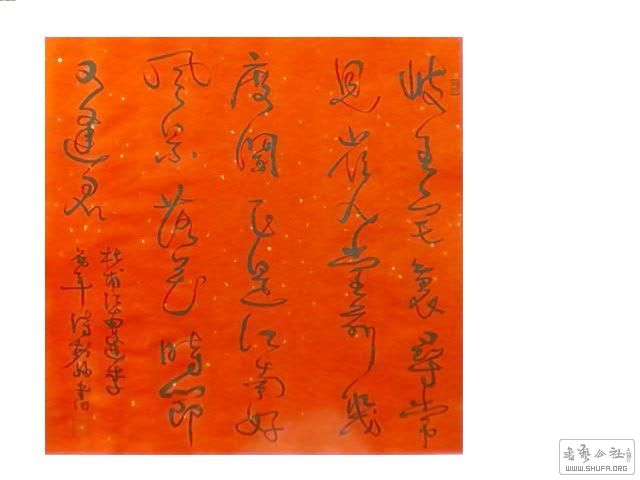 岐王宅裏尋常
見崔九堂前幾
度聞正是江南好
風景落花時節
又逢君
杜甫江南逢李
龜年詩書
書藝公社
WWW.SHUFA.ORG